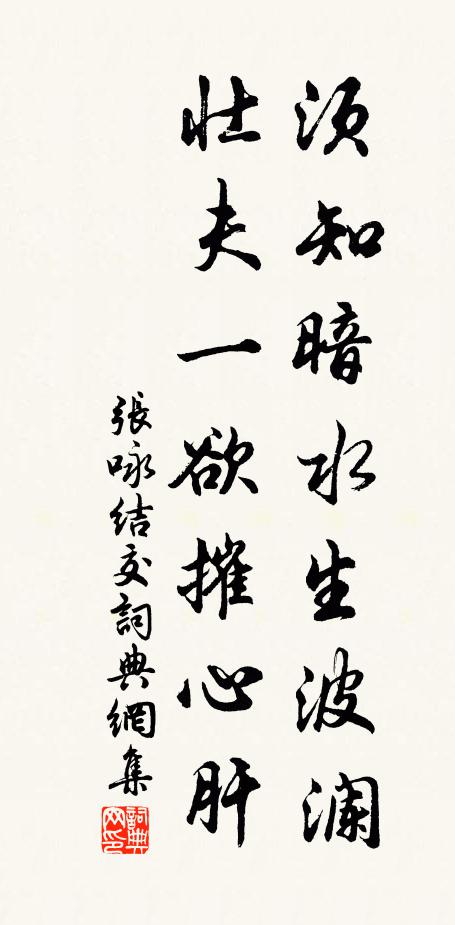 须知暗水生波澜
壮夫一欲摧心肝
張咏结交詞典網集
詞典网印